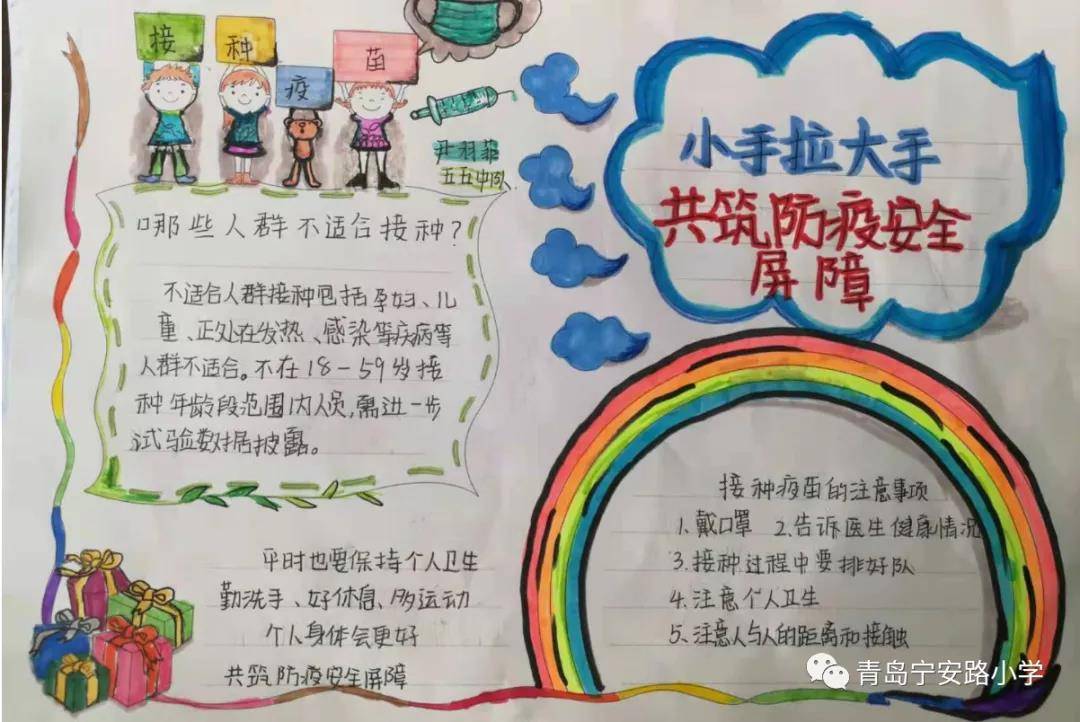 接种疫苗
尹羽菲
五五中队
小手拉大手
共筑防疫安全
屏障
哪些人群不适合接种?
不适合人群接种包括孕妇、儿
童、正处在发热、感染等疾病等
人群不适合。不在18-59岁接
种年龄段范围内人员,需进一步
试验数据披露。
平时也要保持个人卫生
勤洗手、好休息、多运动
个人身体会更好
共筑防疫安全屏障
接种疫苗的注意事项
1.戴口罩 2.告诉医生健康情况
3.接种过程中要排好队
4.注意个人卫生
5、注意人与人的距离和接触
青岛宁安路小学